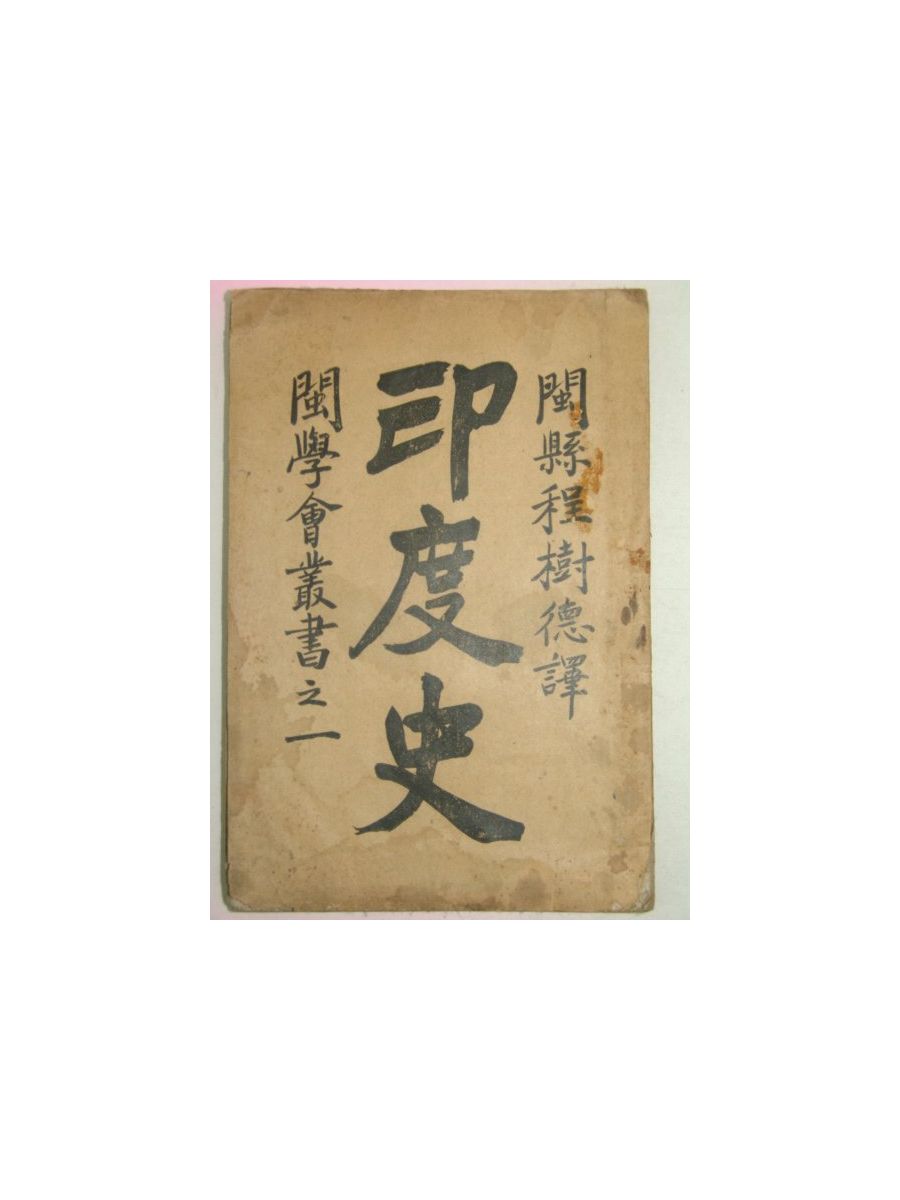 閩縣程樹德譯
印度史
閩學會叢書之一